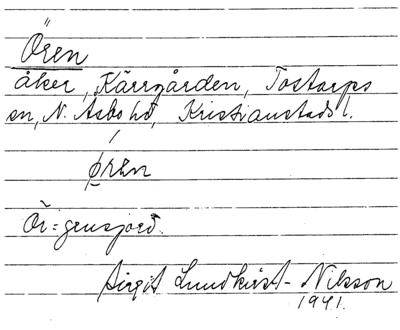 Ören
åker, Kärrgården, Tostarps
sn, N. Åsbo hd, Kristianstads l.
øren
Ör = grusjord.
Birgit Lundkvist-Nilsson
1941.